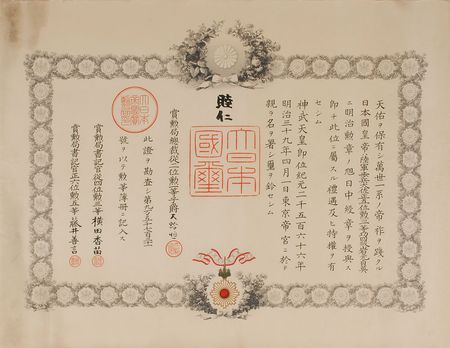 天佑ヲ保有シ萬世一系ノ帝祚ヲ踐タル
日本國皇帝ハ陸軍
ニ明治勲章ノ旭日中綬章ヲ授與ス
即チ此位ニ屬スル禮遇及ヒ特權ヲ有
セシム
神武天皇即位紀元二千五百六十六年
明治三十九年四月一日東京帝宮ニ於テ
親ラ名ヲ署シ璽ヲ鈐セシム
睦仁
大日本
國璽
賞勲局總裁從二位勲一等子爵大給恒
此證ヲ勘査シ第
號ヲ以テ勲等簿冊ニ記入ス
賞勲局書記官從四位勲三等横田香苗
賞勲局書記官正六位勲五等藤井善言